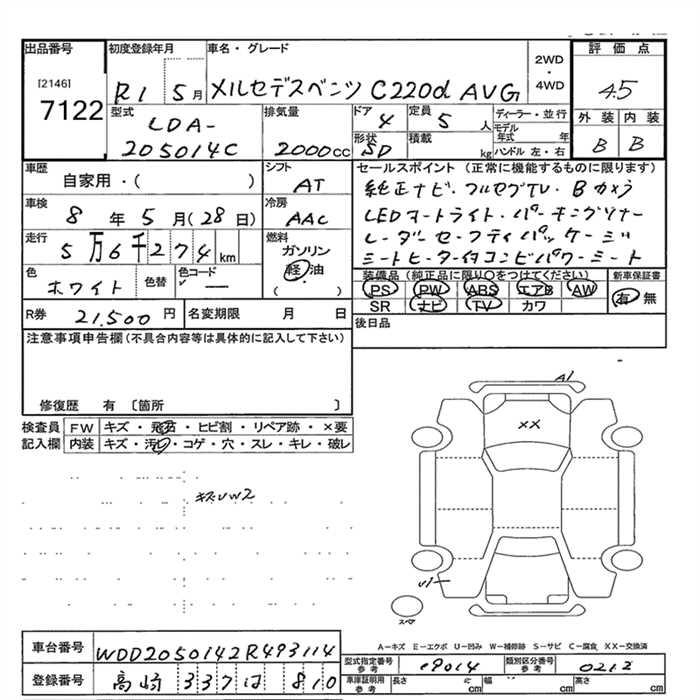 出品番号
[2146]
7122
初度登録年月
R1 5月
車名・グレード
メルセデスベンツ C220d AVG
2WD
・
4WD
評価点
4.5
外装 内装
B B
型式
LDA-
205014C
排気量
2000cc
ドア
4
定員
5人
形状
5D
積載
kg
ディーラー・並行
モデル年式 年
ハンドル 左・右
車歴
自家用・( )
シフト
AT
車検
8年5月(28日)
冷房
AAC
走行
5万6千274km
燃料
ガソリン
軽油
( )
色
ホワイト
色替
色コード
セールスポイント (正常に機能するものに限ります)
純正ナビ・フルセグTV・Bカメラ
LEDオートライト・パーキングソナー
レーダーセーフティパッケージ
シートヒーター付コンビパワーシート
装備品 (純正品に限り○をつけてください)
PS PW ABS エアB AW
SR ナビ TV カワ
新車保証書
有 無
R券
21,500円
名変期限 月 日
後日品
注意事項申告欄(不具合内容等は具体的に記入して下さい)
修復歴 有 〔箇所 〕
検査員
記入欄
FW キズ・飛石・ヒビ割・リペア跡・×要
内装 キズ・汚れ・コゲ・穴・スレ・キレ・破レ
キズUW2
A1
XX
U1
スペア
A-キズ E-エクボ U-凹み W-補修跡 S-サビ C-腐食 XX-交換済
車台番号
WDD2050142R493114
登録番号
高崎 337 は 810
型式指定番号
参考
19014
類別区分番号
参考
0212
車庫証明用
参考
長さ cm
幅 cm
高さ cm